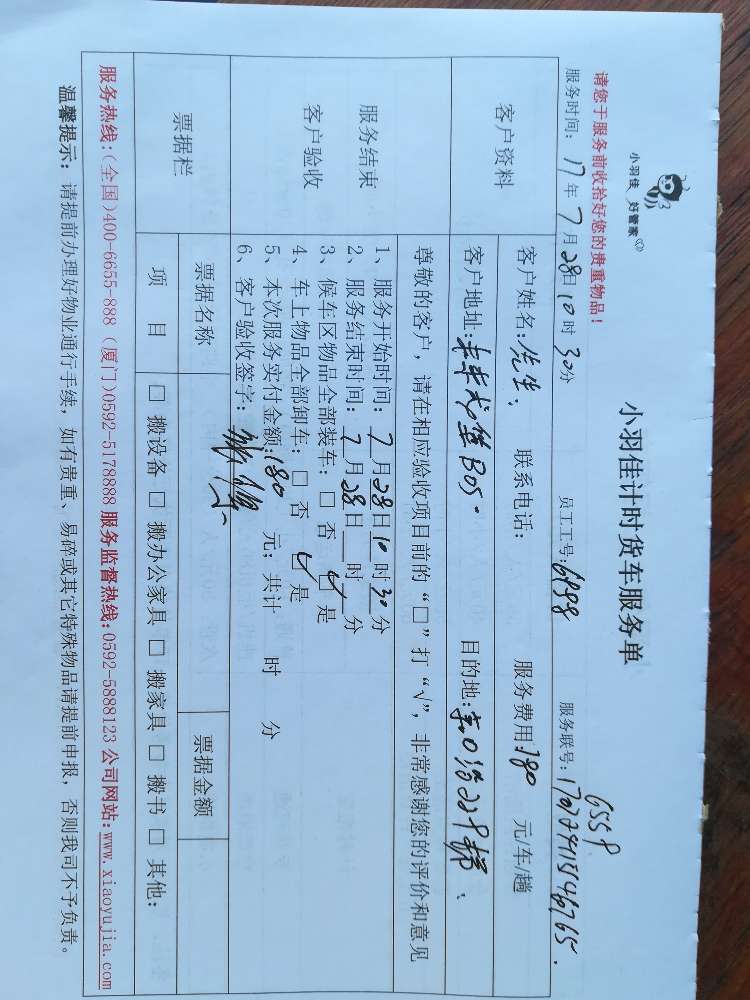 小羽佳 好管家
小羽佳计时货车服务单
6559
请您于服务前收拾好您的贵重物品！
服务时间：17年7月28日10时30分 员工工号：6898 服务联号：
客户资料
客户姓名：先生、 联系电话： 服务费用 180 元/车/趟
客户地址： B05. 目的地：
尊敬的客户，请在相应验收项目前的“□”打“√”，非常感谢您的评价和意见
服务结束
客户验收
1、服务开始时间：7月28日10时30分
2、服务结束时间：7月28日 时 分
3、候车区物品全部装车：□ 否 ☑ 是
4、车上物品全部卸车：□ 否 ☑ 是
5、本次服务实付金额：180 元；共计 时 分
6、客户验收签字：
票据栏
票据名称 票据金额
项 目 □ 搬设备 □ 搬办公家具 □ 搬家具 □ 搬书 □ 其他：
服务热线：(全国)400-6655-888 (厦门)0592-5178888 服务监督热线：0592-5888123 公司网站：www.xiaoyujia.com
温馨提示：请提前办理好物业通行手续，如有贵重、易碎或其它特殊物品请提前申报，否则我司不予负责。